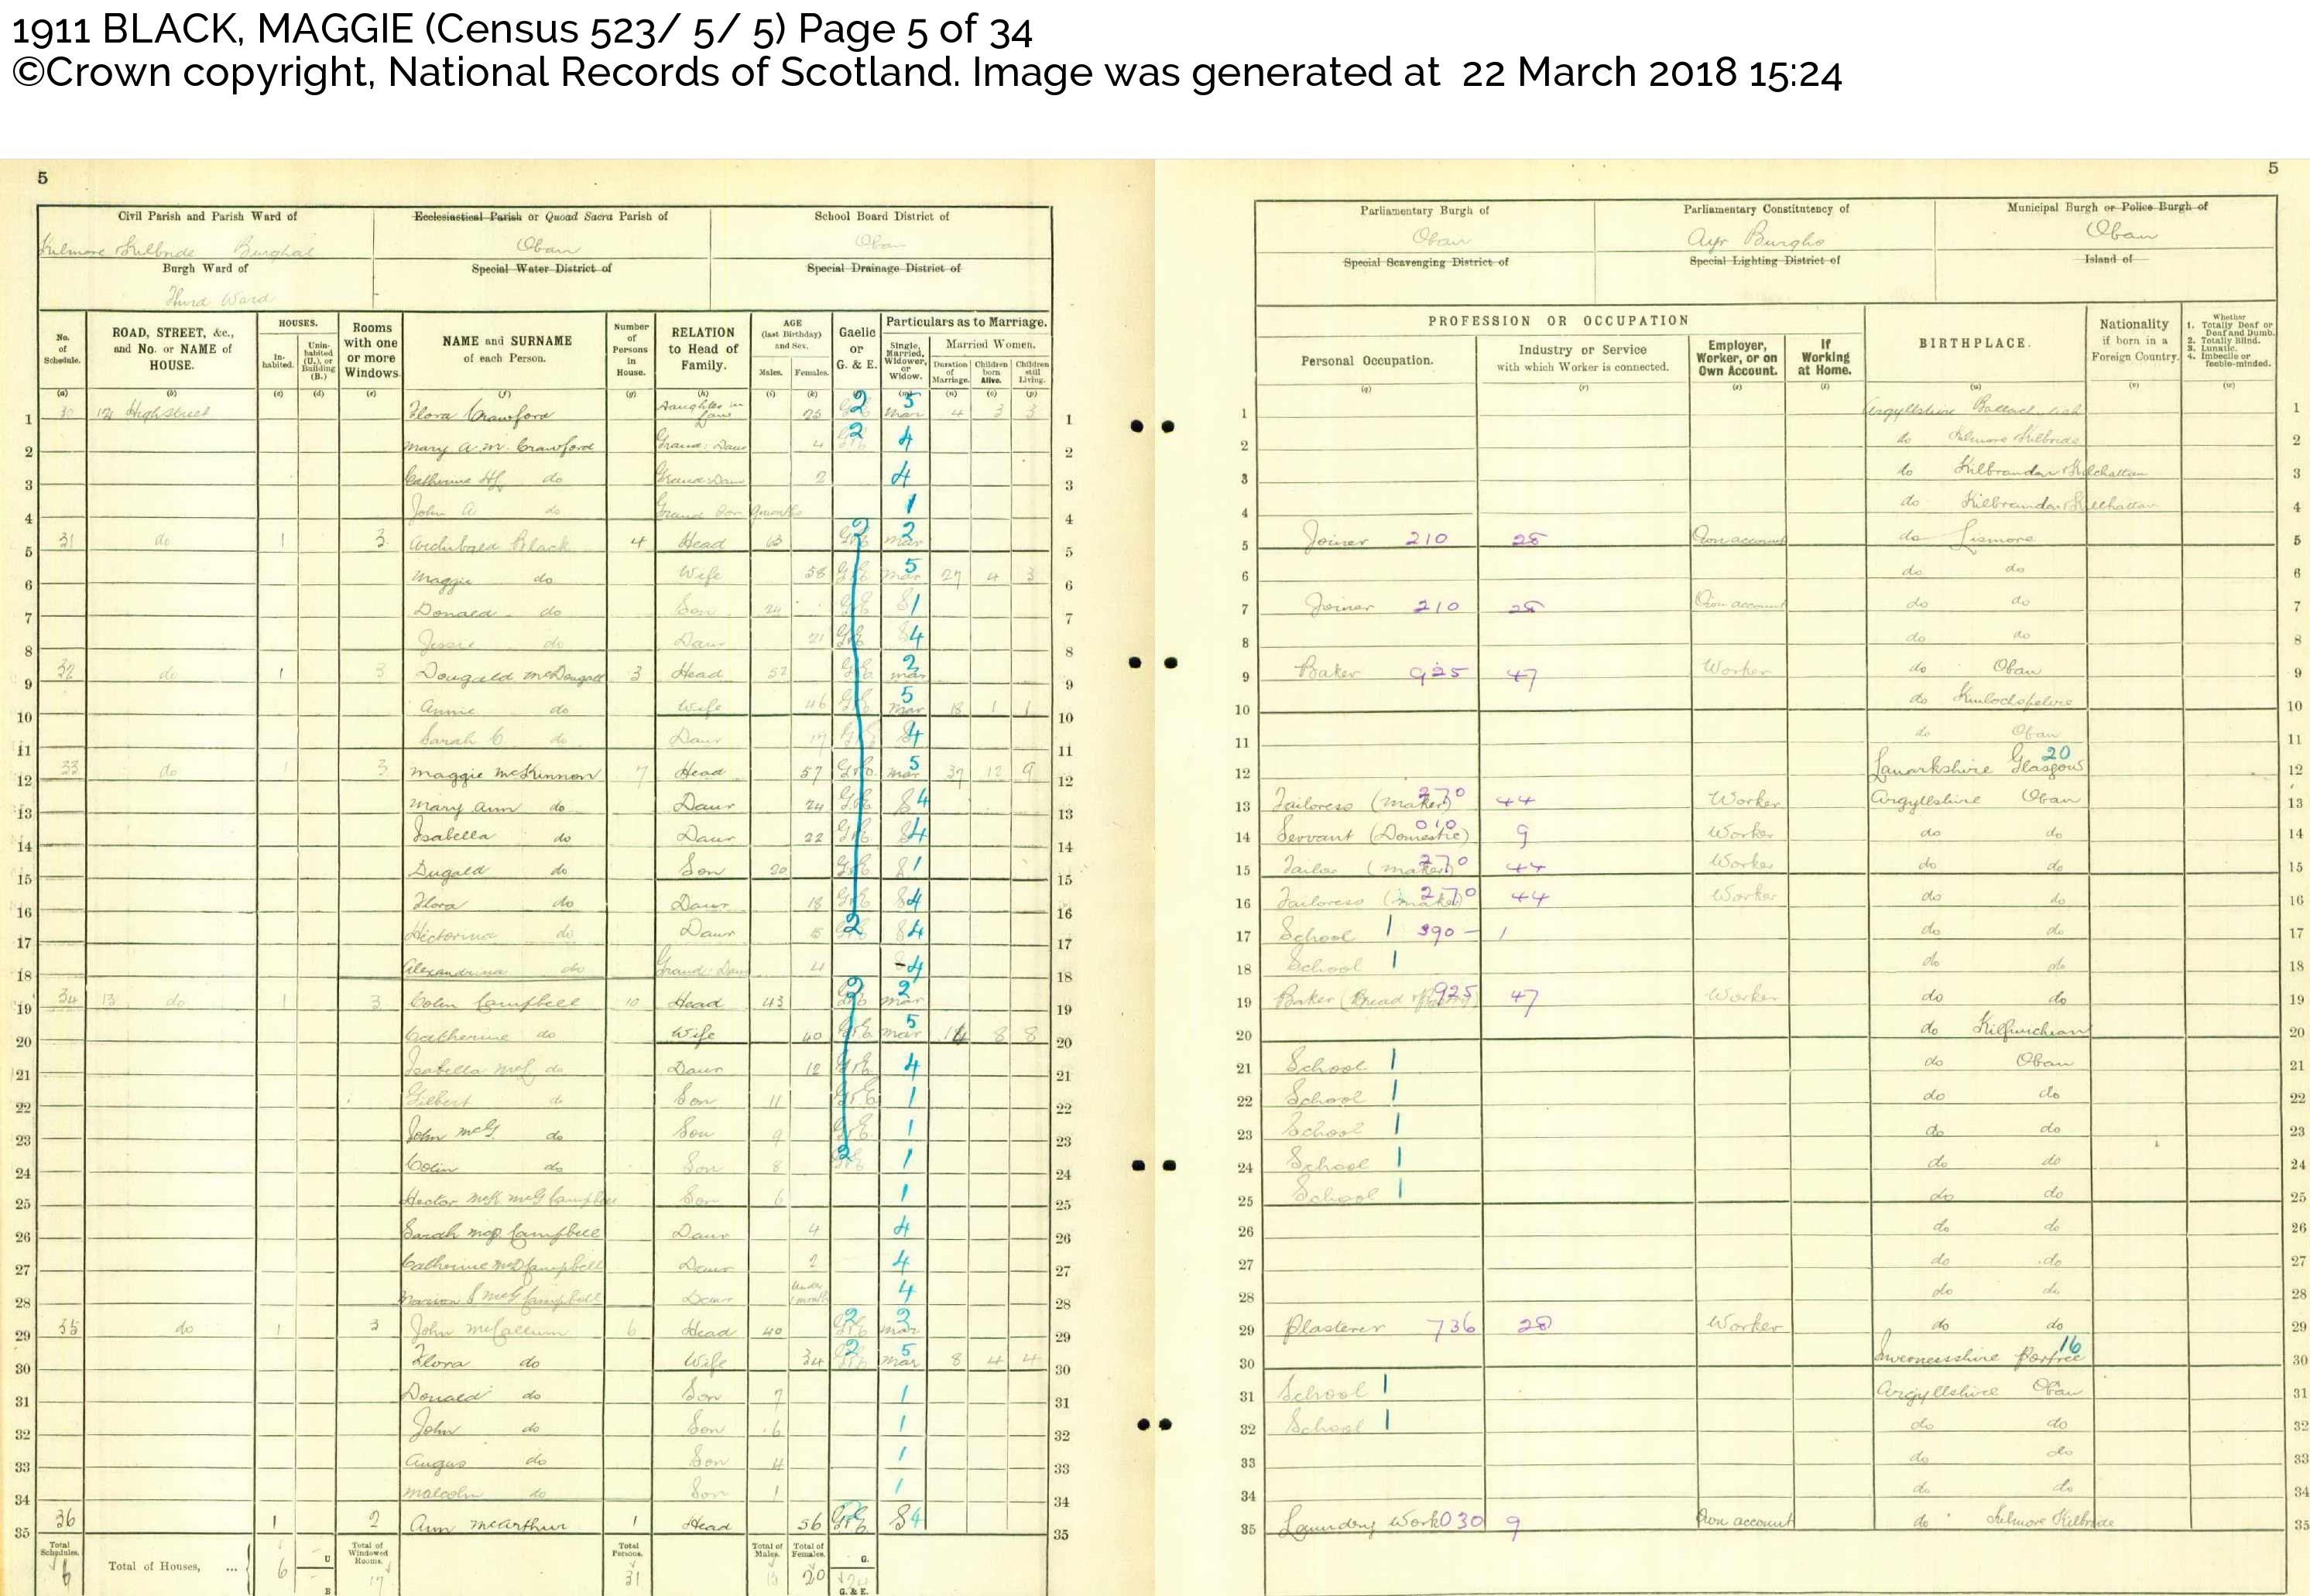 1911 BLACK, MAGGIE (Census 523/ 5/ 5) Page 5 of 34
©Crown copyright, National Records of Scotland. Image was generated at 22 March 2018 15:24
5
5
Civil Parish and Parish Ward of
Ecclesiastical Parish or Quoad Sacra Parish of
School Board District of
Kilmore Kilbride Burghal
Oban
Oban
Burgh Ward of
Special Water District of
Special Drainage District of
Third Ward
Parliamentary Burgh of
Parliamentary Constitutency of
Municipal Burgh or Police Burgh of
Oban
Ayr Burghs
Oban
Special Scavenging District of
Special Lighting District of
Island of
No. of Schedule.
ROAD, STREET, &c., and No. or NAME of HOUSE.
HOUSES.
Inhabited.
Uninhabited (U.), or Building (B.)
Rooms with one or more Windows
NAME and SURNAME of each Person.
Number of Persons in House.
RELATION to Head of Family.
AGE (last Birthday) and Sex.
Males. Females.
Gaelic or G. & E.
Particulars as to Marriage.
Single, Married, Widower, or Widow.
Married Women.
Duration of Marriage. Children born Alive. Children still Living.
PROFESSION OR OCCUPATION
Personal Occupation.
Industry or Service with which Worker is connected.
Employer, Worker, or on Own Account.
If Working at Home.
BIRTHPLACE.
Nationality if born in a Foreign Country.
Whether 1. Totally Deaf or Deaf and Dumb. 2. Totally Blind. 3. Lunatic. 4. Imbecile or feeble-minded.
1 30 12 High Street Flora Crawford Daughter in law 25 G&E 2 Mar 5 4 3 3 Argyllshire
2 Mary A. Crawford Grand: Daur 4 G&E 2 4 do Kilmore Kilbride
3 Catherine do Grand: Daur 2 4 do Kilbrandon Kilchattan
4 John A do Grand Son 9 months 1 do Kilbrandon Kilchattan
5 31 do 1 3 Archibald Black 4 Head 63 G&E 2 Mar 2 Joiner 210 28 Own account do Lismore
6 Maggie do Wife 58 G&E Mar 5 27 4 3 do do
7 Donald do Son 24 G&E S 1 Joiner 210 28 Own account do do
8 Jessie do Daur 21 G&E S 4 do do
9 32 do 1 3 Dougald McDougall 3 Head 52 G&E Mar 2 Baker 925 47 Worker do Oban
10 Annie do Wife 46 G&E Mar 5 18 1 1 do
11 Sarah C. do Daur 17 G&E S 4 do Oban
12 33 do 1 3 Maggie McKinnon 7 Head 57 G&E Mar 5 37 12 9 Lanarkshire Glasgow 20
13 Mary Ann do Daur 24 G&E S 4 Tailoress (maker) 270 44 Worker Argyllshire Oban
14 Isabella do Daur 22 G&E S 4 Servant (Domestic) 010 9 Worker do do
15 Dugald do Son 20 G&E S 1 Tailor (maker) 270 44 Worker do do
16 Flora do Daur 18 G&E S 4 Tailoress (maker) 270 44 Worker do do
17 Hectorina do Daur G&E 2 S 4 School 1 390 - 1 do do
18 Alexandrina do Grand: Daur 4 4 School 1 do do
19 34 13 do 1 3 Colin Campbell 10 Head 43 G&E 2 Mar 2 Baker (Bread 925 47 Worker do do
20 Catherine do Wife 40 G&E Mar 5 14 8 8 do
21 Isabella do Daur 12 G&E 4 School 1 do Oban
22 Gilbert do Son 11 G&E 1 School 1 do do
23 John McG. do Son 9 G&E 1 School 1 do do
24 Colin do Son 8 G&E 2 1 School 1 do do
25 Hector McK McG Campbell Son 6 1 School 1 do do
26 Sarah Campbell Daur 4 4 do do
27 Catherine McD Campbell Daur 2 4 do do
28 Marion S McG Campbell Daur under 1 month 4 do do
29 35 do 1 3 John McCallum 6 Head 40 G&E 2 Mar 2 Plasterer 736 28 Worker do do
30 Flora do Wife 34 G&E 2 Mar 5 8 4 4 Invernessshire Portree 16
31 Donald do Son 7 1 School 1 Argyllshire Oban
32 John do Son 6 1 School 1 do do
33 Angus do Son 4 1 do do
34 Malcolm do Son 1 1 do do
35 36 1 2 Ann McArthur 1 Head 56 G&E S 4 Laundry Work 030 9 Own account do Kilmore Kilbride
Total Schedules. 6
Total of Houses, ... 6
U
B
Total of Windowed Rooms. 17
Total Persons. 31
Total of Males.
Total of Females. 20
G.
G. & E.